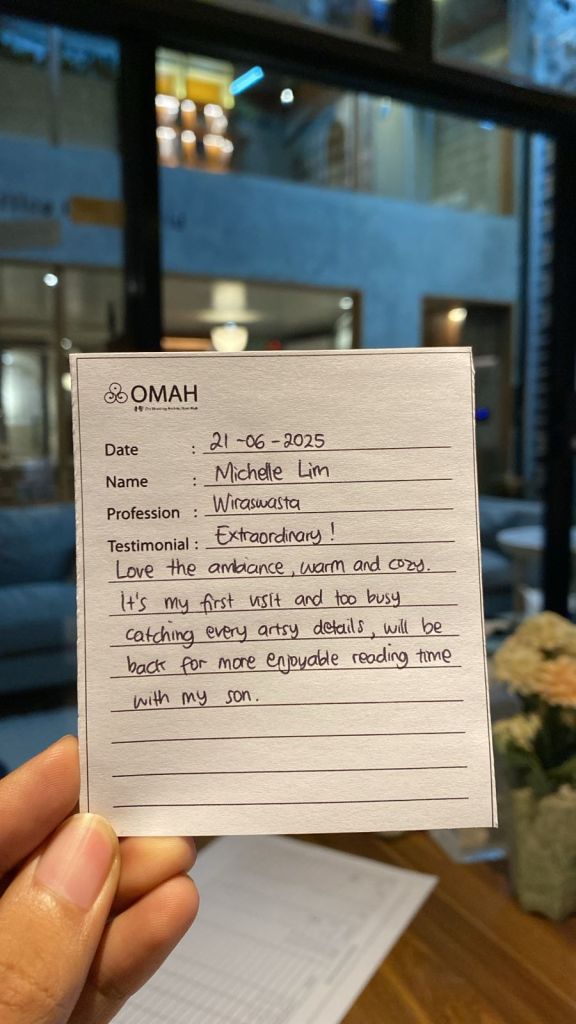 OMAH
Date : 21-06-2025
Name : Michelle Lim
Profession : Wiraswasta
Testimonial : Extraordinary!
Love the ambiance, warm and cozy.
It's my first visit and too busy
catching every artsy details, will be
back for more enjoyable reading time
with my son.